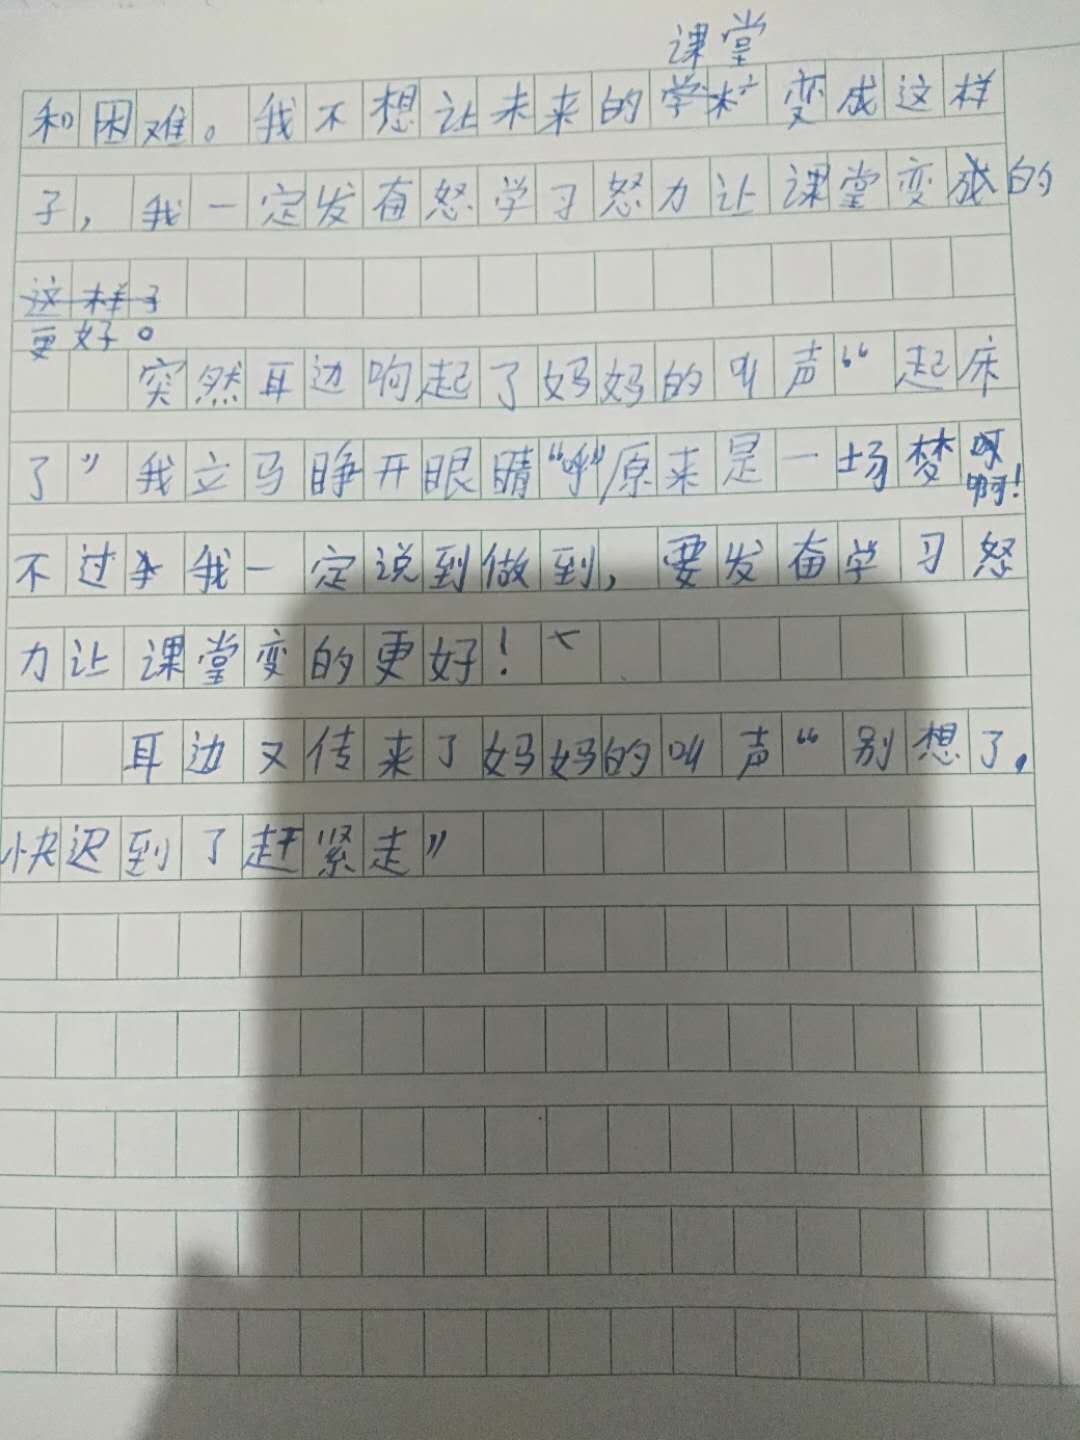 课堂
和困难。我不想让未来的学校变成这样
子，我一定发奋怒学习怒力让课堂变成的
这样子
更好。
突然耳边响起了妈妈的叫声“起床
了”我立马睁开眼睛“呼”原来是一场梦啊
啊！
不过我一定说到做到，要发奋学习怒
力让课堂变的更好！
耳边又传来了妈妈的叫声“别想了，
快迟到了赶紧走”